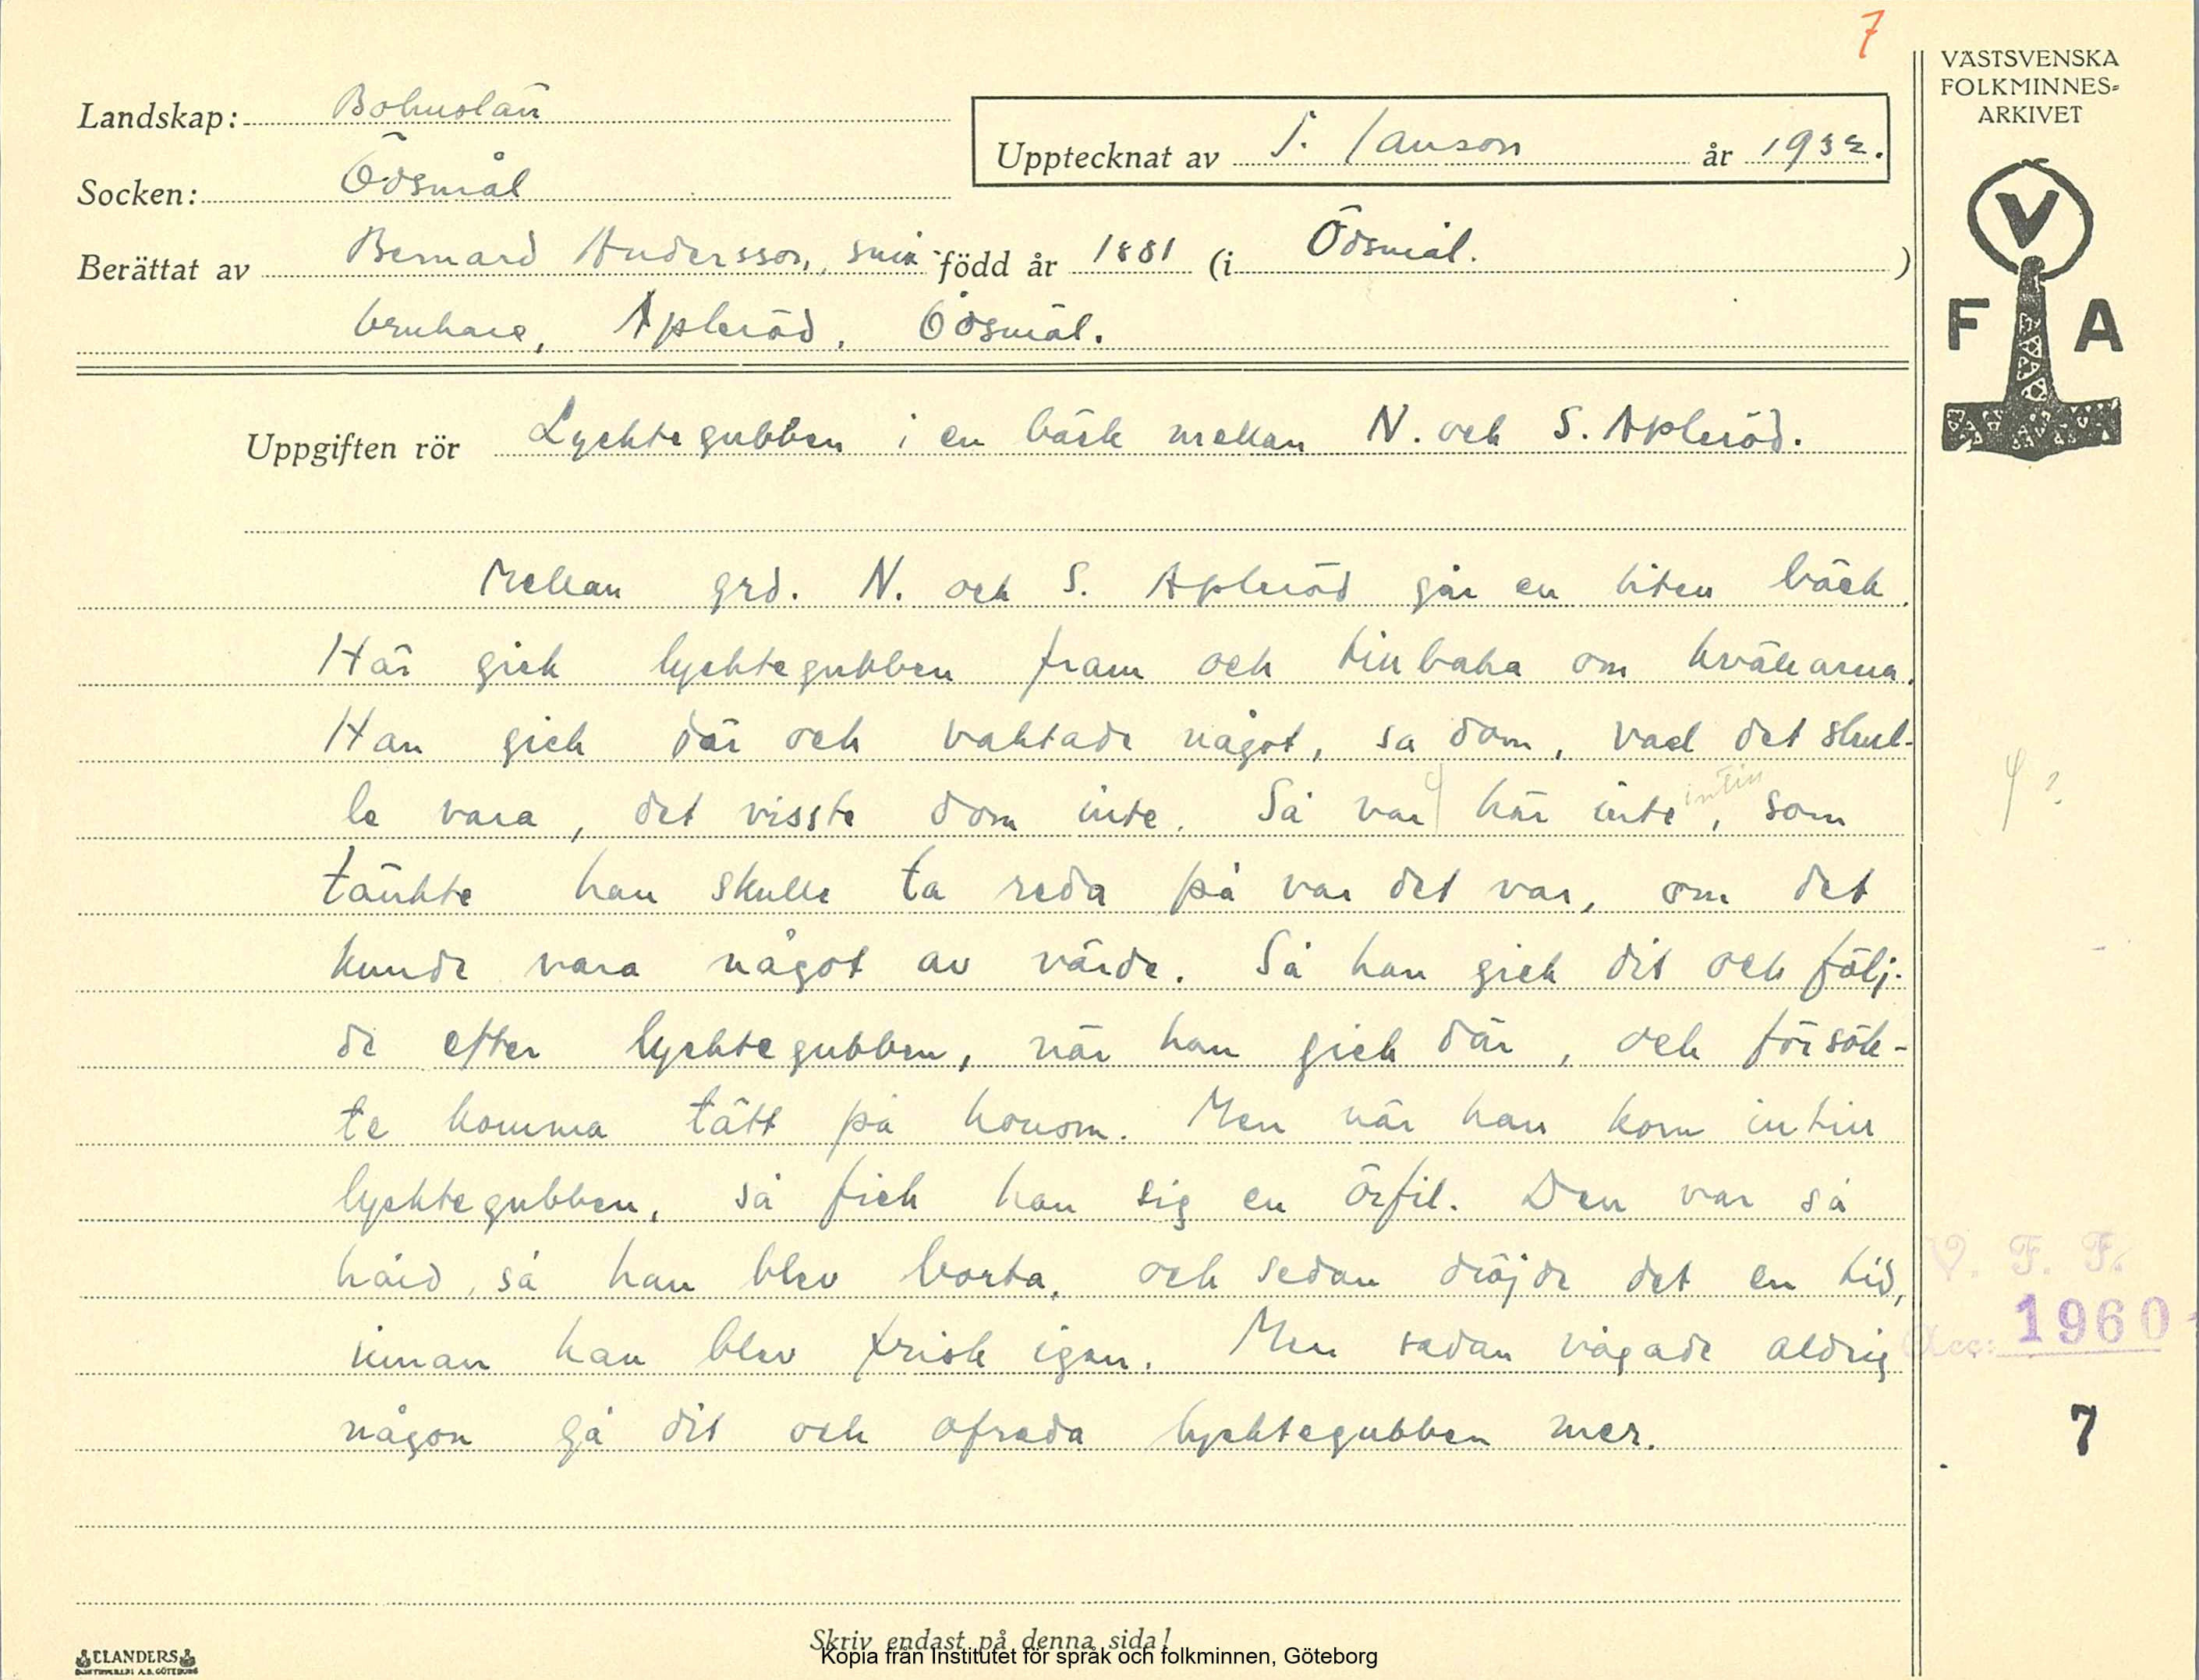 7
VÄSTSVENSKA
FOLKMINNES-
ARKIVET
Landskap: Bohuslän
Upptecknat av S. Janson år 1932.
Socken: Ödsmål
Berättat av Bernard Andersson, små- född år 1881 (i Ödsmål. )
brukare, Apleröd, Ödsmål.
V
F A
Uppgiften rör Lycktegubben i en bäck mellan N. och S. Apleröd.
Mellan grd. N. och S. Apleröd går en liten bäck.
Här gick lycktegubben fram och tillbaka om kvällarna.
Han gick där och vaktade något, sa dom, vad det skul-
le vara, det visste dom inte. Så var här inte intill, som
tänkte han skulle ta reda på var det var, om det
kunde vara något av värde. Så han gick dit och följ-
de efter lycktegubben, när han gick där, och försök-
te komma tätt på honom. Men när han kom intill
lycktegubben, så fick han sig en örfil. Den var så
hård, så han blev borta, och sedan dröjde det en tid,
innan han blev frisk igen. Men sedan vågade aldrig
någon gå dit och ofreda lycktegubben mer.
V. F. F.
Acc: 1960
7
Skriv endast på denna sida!
Kopia från Institutet för språk och folkminnen, Göteborg
ELANDERS